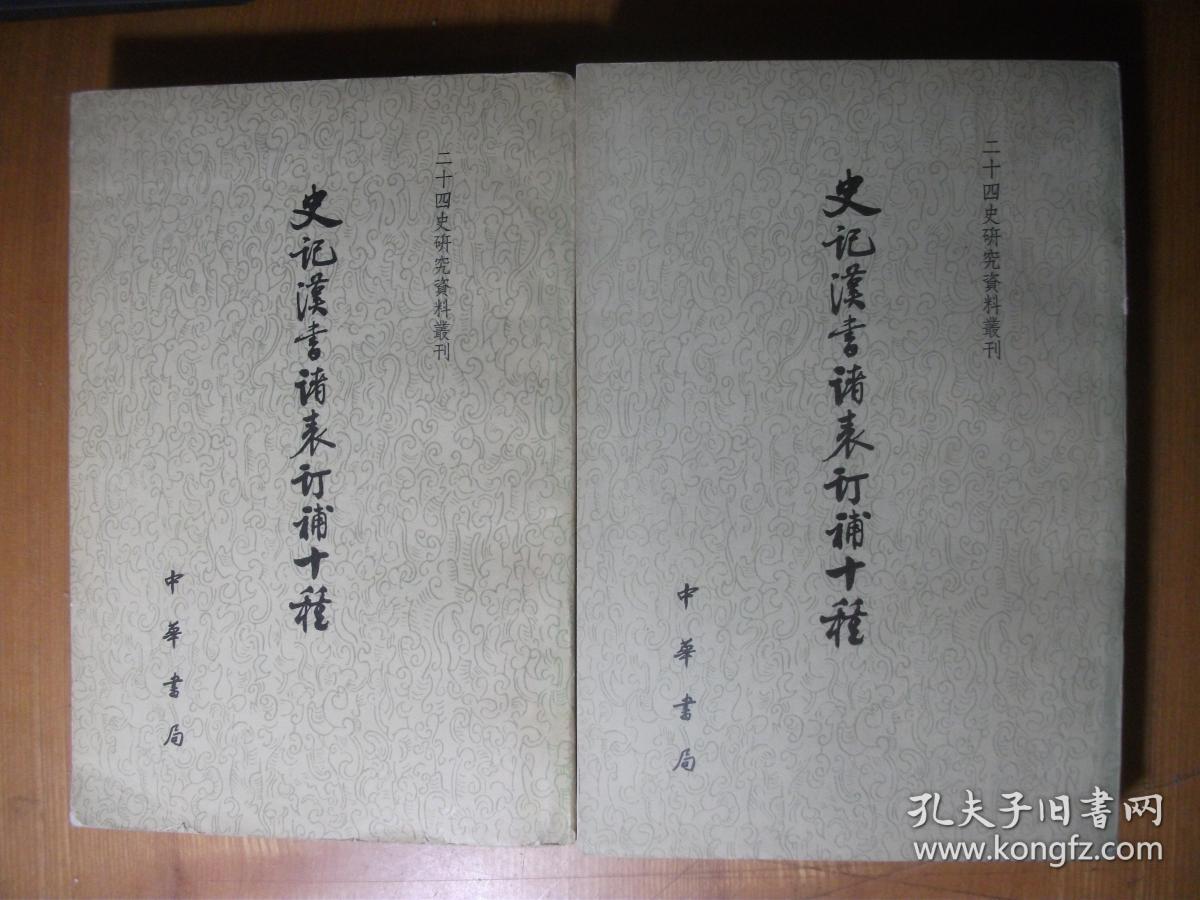 二十四史研究資料叢刊
史记漢書諸表订補十種
中華書局
二十四史研究資料叢刊
史记漢書諸表订補十種
中華書局
孔夫子旧书网
www.kongfz.com